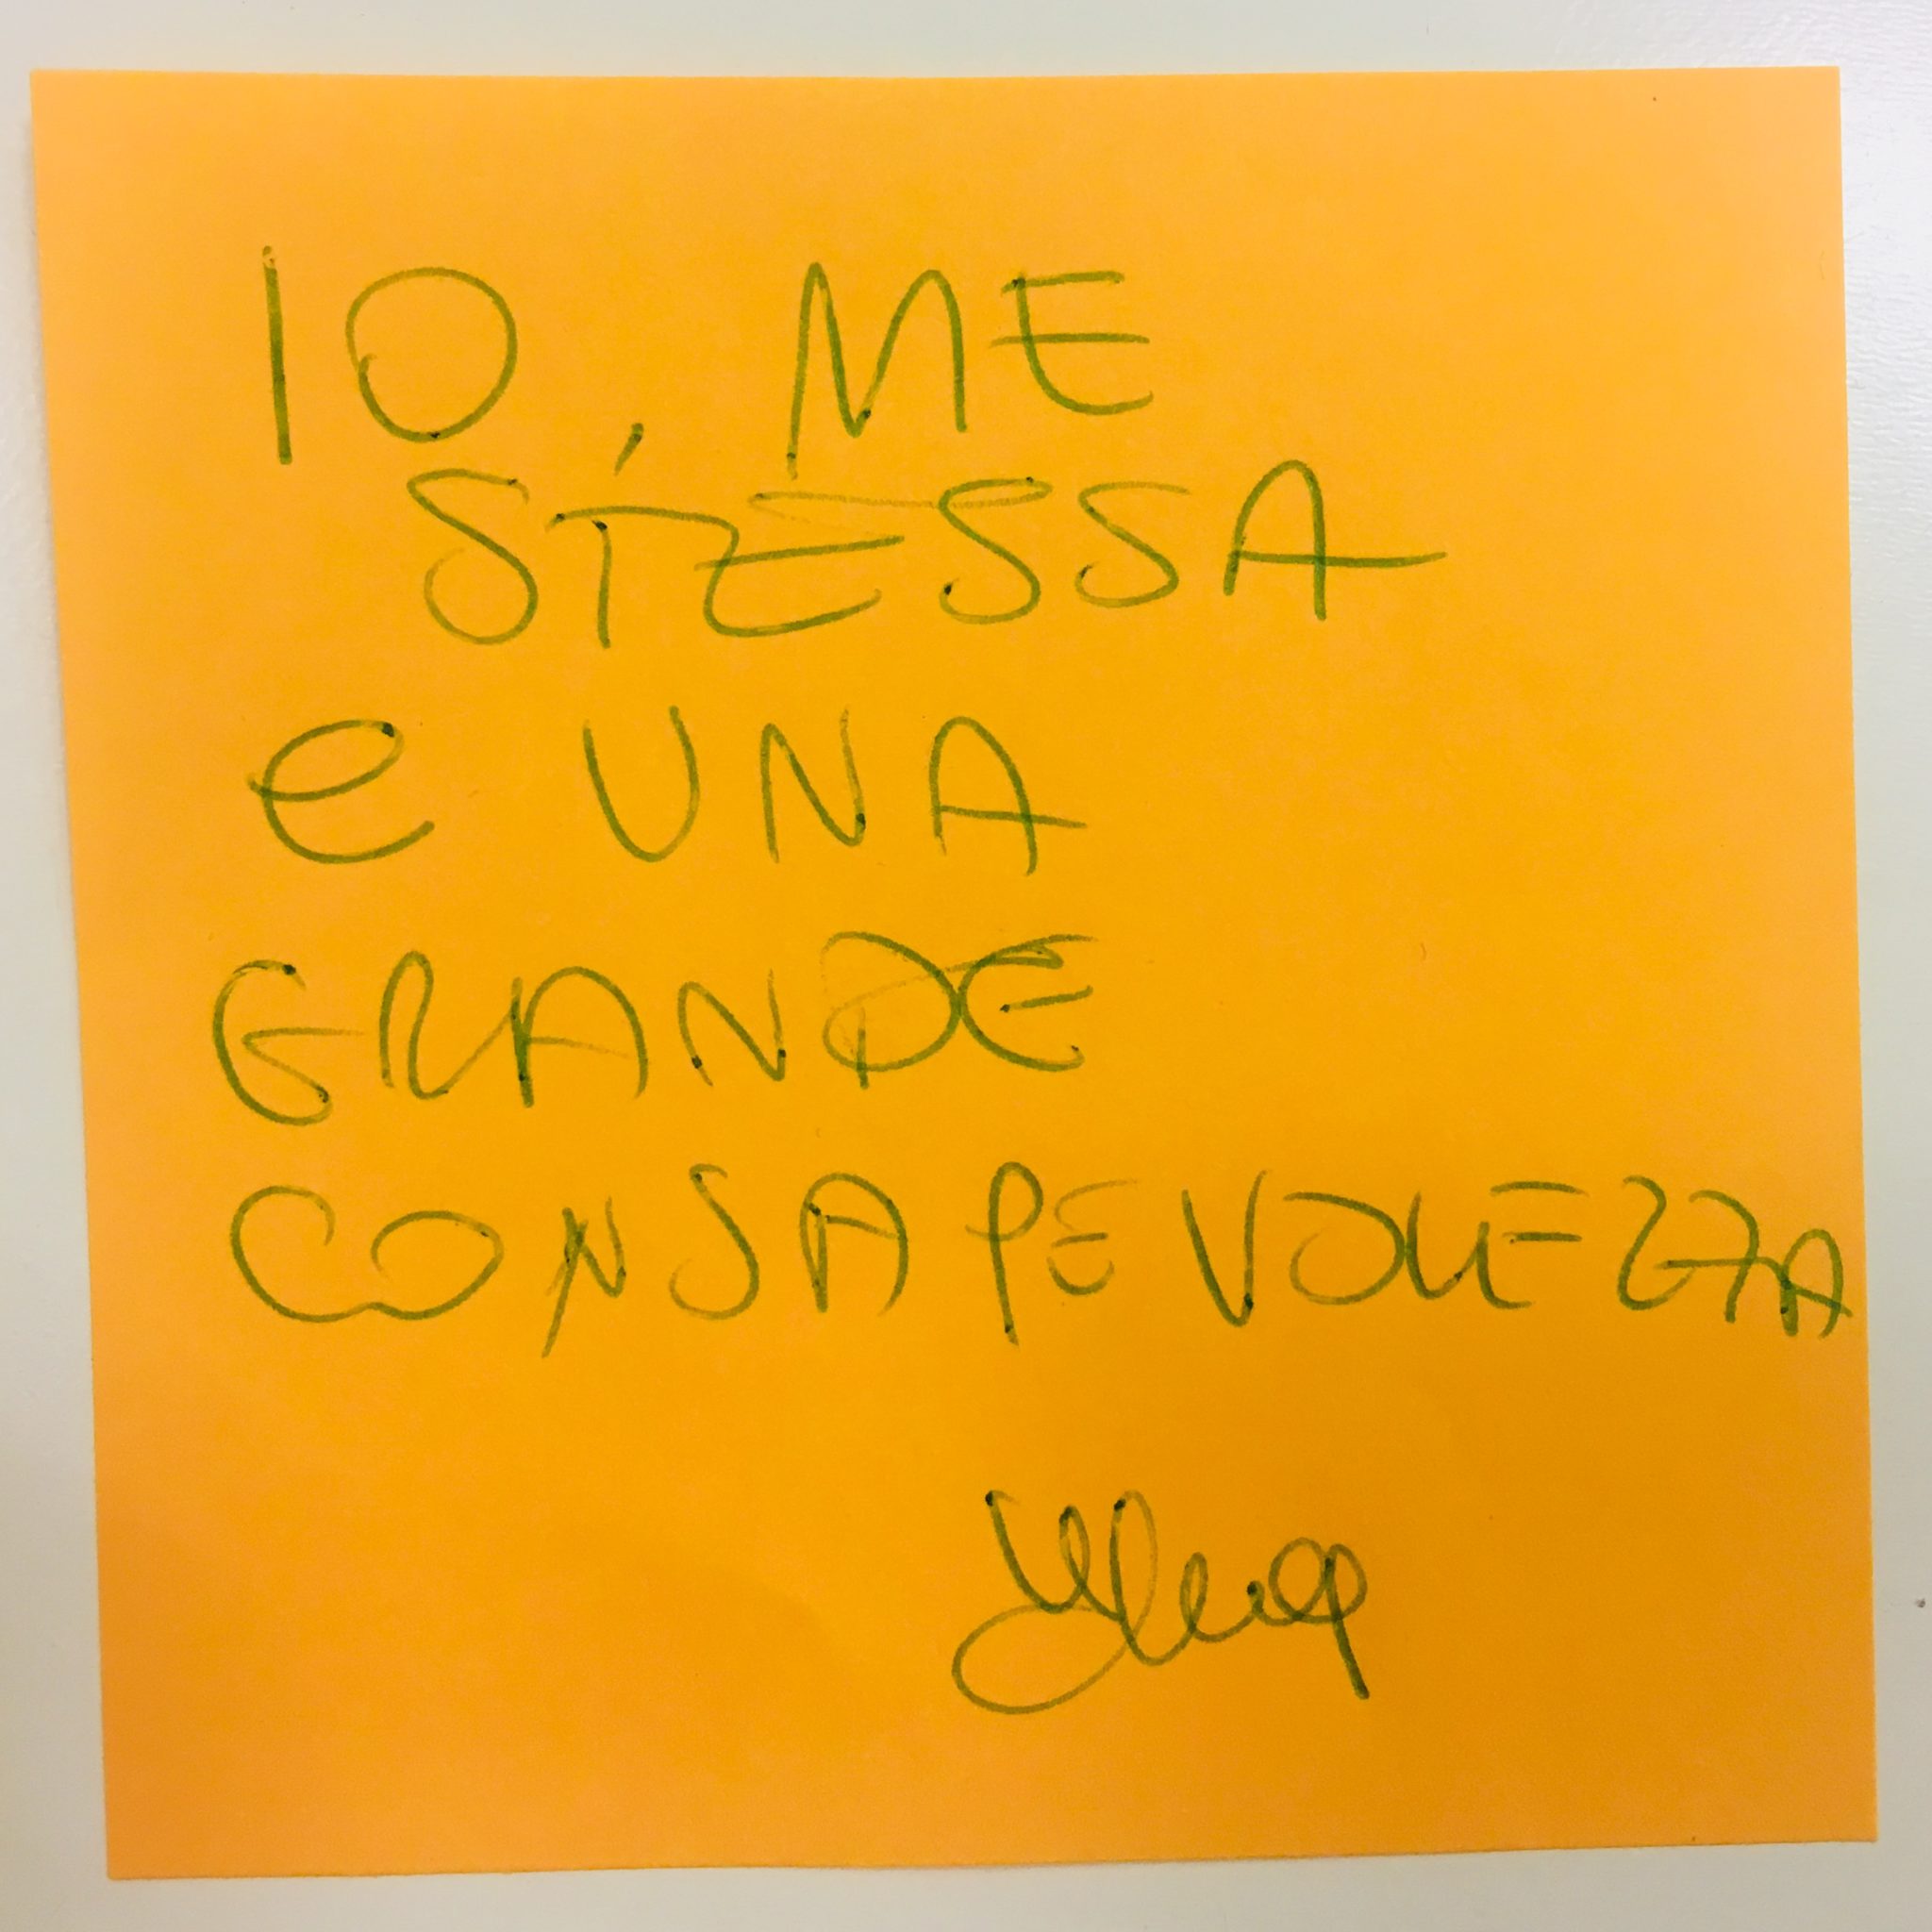 IO, ME
STESSA
e UNA
GRANDE
CONSAPEVOLEZZA